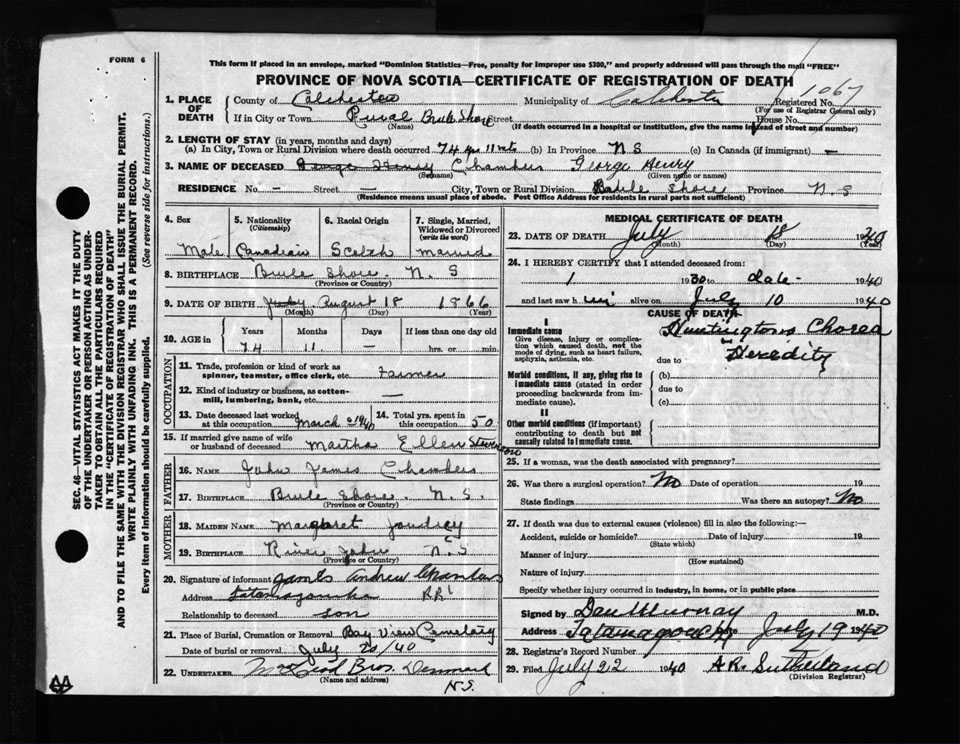 FORM 6
This form if placed in an envelope, marked "Dominion Statistics—Free, penalty for improper use $300," and properly addressed will pass through the mail "FREE"
PROVINCE OF NOVA SCOTIA—CERTIFICATE OF REGISTRATION OF DEATH
1. PLACE OF DEATH County of Colchester Municipality of Colchester Registered No. 1067
(For use of Registrar General only)
If in City or Town Rural Brule Shore Street House No.
(Name) (If death occurred in a hospital or institution, give the name instead of street and number)
2. LENGTH OF STAY (in years, months and days)
(a) In City, Town or Rural Division where death occurred 74 yrs 11 mts (b) In Province N S (c) In Canada (if immigrant) —
3. NAME OF DECEASED George Henry Chambers George Henry
(Surname) (Given name or names)
RESIDENCE No. — Street — City, Town or Rural Division Brule Shore Province N. S
(Residence means usual place of abode. Post Office Address for residents in rural parts not sufficient)
4. Sex 5. Nationality (Citizenship) 6. Racial Origin 7. Single, Married, Widowed or Divorced (write the word)
Male Canadian Scotch Married
8. BIRTHPLACE Brule Shore. N. S
(Province or Country)
9. DATE OF BIRTH July August 18 1866
(Month) (Day) (Year)
10. AGE in Years Months Days If less than one day old
74 11 — hrs. or min.
OCCUPATION
11. Trade, profession or kind of work as spinner, teamster, office clerk, etc. Farmer
12. Kind of industry or business, as cotton-mill, lumbering, bank, etc. —
13. Date deceased last worked at this occupation March 1940 14. Total yrs. spent in this occupation 50
15. If married give name of wife or husband of deceased Martha Ellen
FATHER
16. NAME John James Chambers
17. BIRTHPLACE Brule Shore. N. S.
(Province or Country)
MOTHER
18. MAIDEN NAME Margaret Joudrey
19. BIRTHPLACE River John N. S
(Province or Country)
20. Signature of informant James Andrew Chambers
Address Tatamagouche RR 1
Relationship to deceased son
21. Place of Burial, Cremation or Removal Bay View Cemetary
Date of burial or removal July 20/40
22. UNDERTAKER Bros. Denmark
(Name and address) N.S.
MEDICAL CERTIFICATE OF DEATH
23. DATE OF DEATH July 18 1940
(Month) (Day) (Year)
24. I HEREBY CERTIFY that I attended deceased from:
1 1930 to date 1940
and last saw him alive on July 10 1940
CAUSE OF DEATH
I
Immediate cause Huntingtons Chorea
Give disease, injury or complication which caused death, not the mode of dying, such as heart failure, asphyxia, asthenia, etc.
due to Heredity
Morbid conditions, if any, giving rise to immediate cause (stated in order proceeding backwards from immediate cause).
(b)
due to
(c)
II
Other morbid conditions (if important) contributing to death but not causally related to immediate cause.
25. If a woman, was the death associated with pregnancy?
26. Was there a surgical operation? No Date of operation 19
State findings Was there an autopsy? No
27. If death was due to external causes (violence) fill in also the following:—
Accident, suicide or homicide? Date of injury 19
(State which)
Manner of injury
(How sustained)
Nature of injury
Specify whether injury occurred in industry, in home, or in public place
Signed by Dan Murray M.D.
Address Tatamagouche Date July 19 1940
28. Registrar's Record Number
29. Filed July 22 1940 A R. Sutherland
(Division Registrar)
SEC. 46—VITAL STATISTICS ACT MAKES IT THE DUTY
OF THE UNDERTAKER OR PERSON ACTING AS UNDER-
TAKER TO OBTAIN ALL THE PARTICULARS REQUIRED
IN THE "CERTIFICATE OF REGISTRATION OF DEATH"
AND TO FILE THE SAME WITH THE DIVISION REGISTRAR WHO SHALL ISSUE THE BURIAL PERMIT.
WRITE PLAINLY WITH UNFADING INK. THIS IS A PERMANENT RECORD.
Every item of information should be carefully supplied. (See reverse side for instructions.)